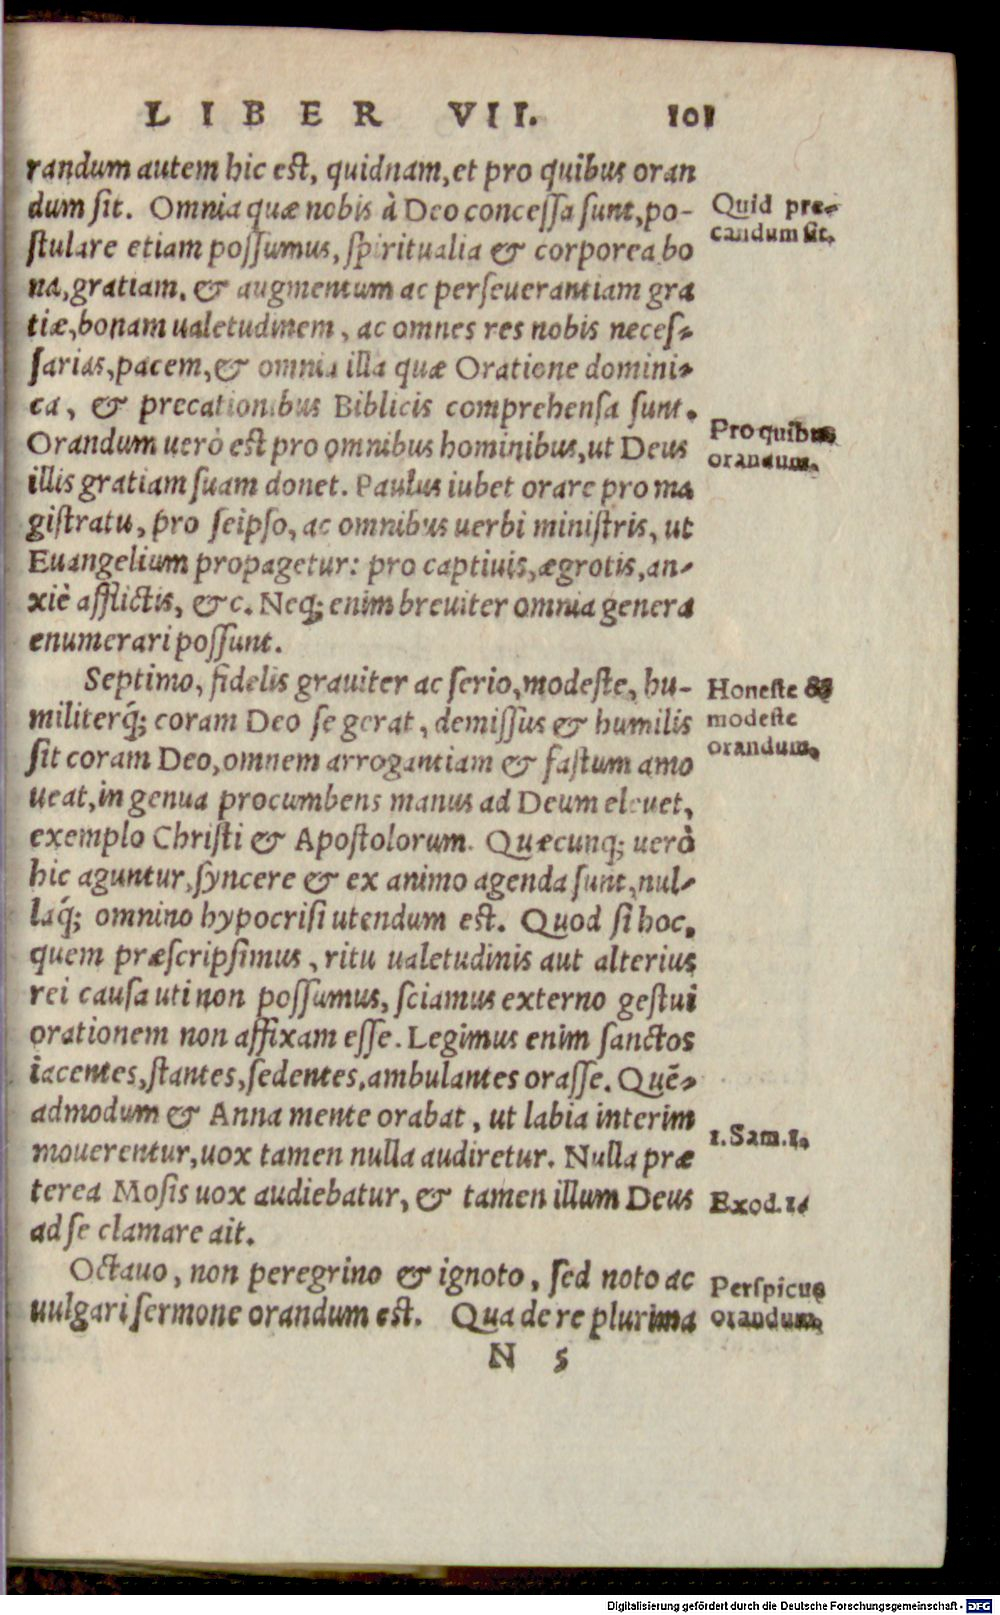 LIBER VII. 101
randum autem hic est, quidnam, et pro quibus oran
dum sit. Omnia quæ nobis à Deo concessa sunt, po-
stulare etiam possumus, spiritualia & corporea bo
na, gratiam, & augmentum ac perseuerantiam gra
tiæ, bonam ualetudinem, ac omnes res nobis neces-
sarias, pacem, & omnia illa quæ Oratione domini-
ca, & precationibus Biblicis comprehensa sunt.
Orandum uerò est pro omnibus hominibus, ut Deus
illis gratiam suam donet. Paulus iubet orare pro ma
gistratu, pro seipso, ac omnibus uerbi ministris, ut
Euangelium propagetur: pro captiuis, ægrotis, an-
xiè afflictis, &c. Neq; enim breuiter omnia genera
enumerari possunt.
Septimo, fidelis grauiter ac serio, modeste, hu-
militerq́; coram Deo se gerat, demissus & humilis
sit coram Deo, omnem arrogantiam & fastum amo
ueat, in genua procumbens manus ad Deum eleuet,
exemplo Christi & Apostolorum. Quæcunq; uerò
hic aguntur, syncere & ex animo agenda sunt, nul-
laq́; omnino hypocrisi utendum est. Quod si hoc,
quem præscripsimus, ritu ualetudinis aut alterius
rei causa uti non possumus, sciamus externo gestui
orationem non affixam esse. Legimus enim sanctos
iacentes, stantes, sedentes, ambulantes orasse. Quē-
admodum & Anna mente orabat, ut labia interim
mouerentur, uox tamen nulla audiretur. Nulla præ
terea Mosis uox audiebatur, & tamen illum Deus
ad se clamare ait.
Octauo, non peregrino & ignoto, sed noto ac
uulgari sermone orandum est. Qua de re plurima
N 5
Quid pre-
candum sit.
Pro quibus
orandum.
Honeste &
modeste
orandum.
1. Sam. 1.
Exod. 14
Perspicue
orandum.
Digitalisierung gefördert durch die Deutsche Forschungsgemeinschaft - DFG